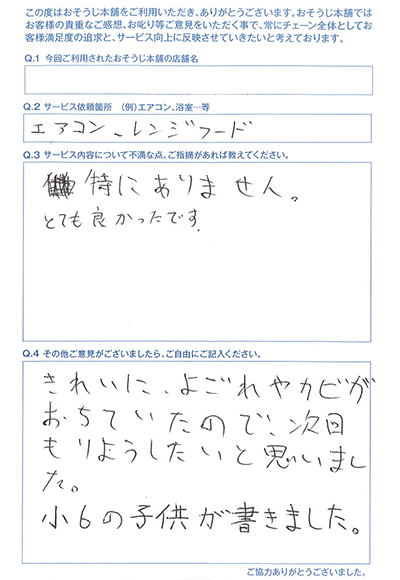 この度はおそうじ本舗をご利用いただき、ありがとうございます。おそうじ本舗では
お客様の貴重なご感想、お叱り等ご意見をいただく事で、常にチェーン全体としてお
客様満足度の追求と、サービス向上に反映させていきたいと考えております。
Q.1 今回ご利用されたおそうじ本舗の店舗名
Q.2 サービス依頼箇所 (例)エアコン、浴室…等
エアコン、レンジフード
Q.3 サービス内容について不満な点、ご指摘があれば教えてください。
特にありません。
とても良かったです.
Q.4 その他ご意見がございましたら、ご自由にご記入ください。
きれいに、よごれやカビが
おちていたので、次回
もりようしたいと思いまし
た。
小6の子供が書きました。
ご協力ありがとうございました。